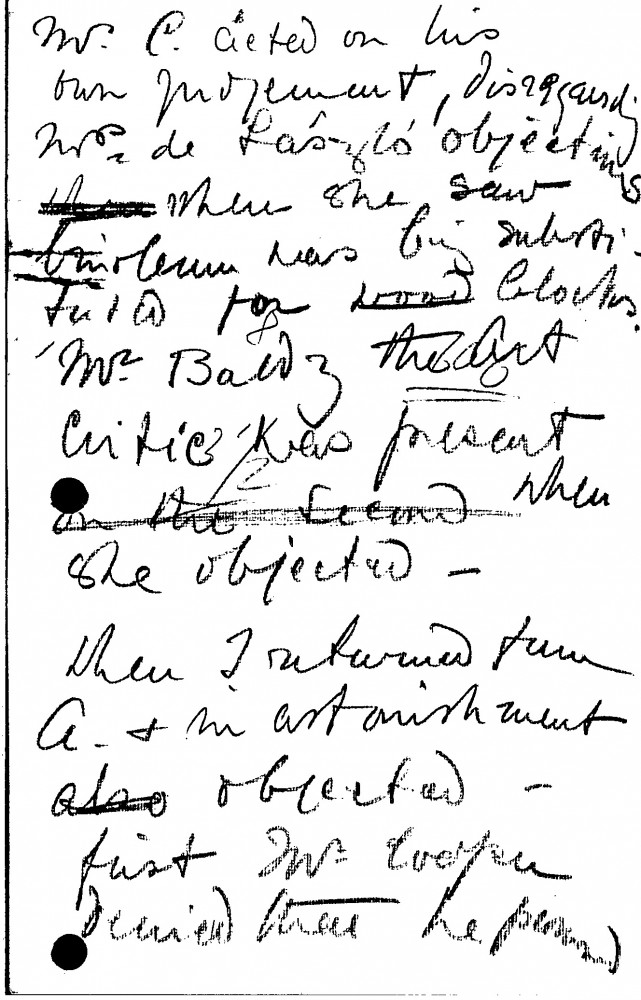 Mr. C. acted on his
own judgement, disregarding
Mrs. de László objections
when she saw
linoleum was being substi-
tuted for wood blocks.
Mr. Baldry the Art
Critic was present
on the second when
she objected –
When I returned from
A. & in astonishment
also objected –
first Mr. Cooper
denied that he